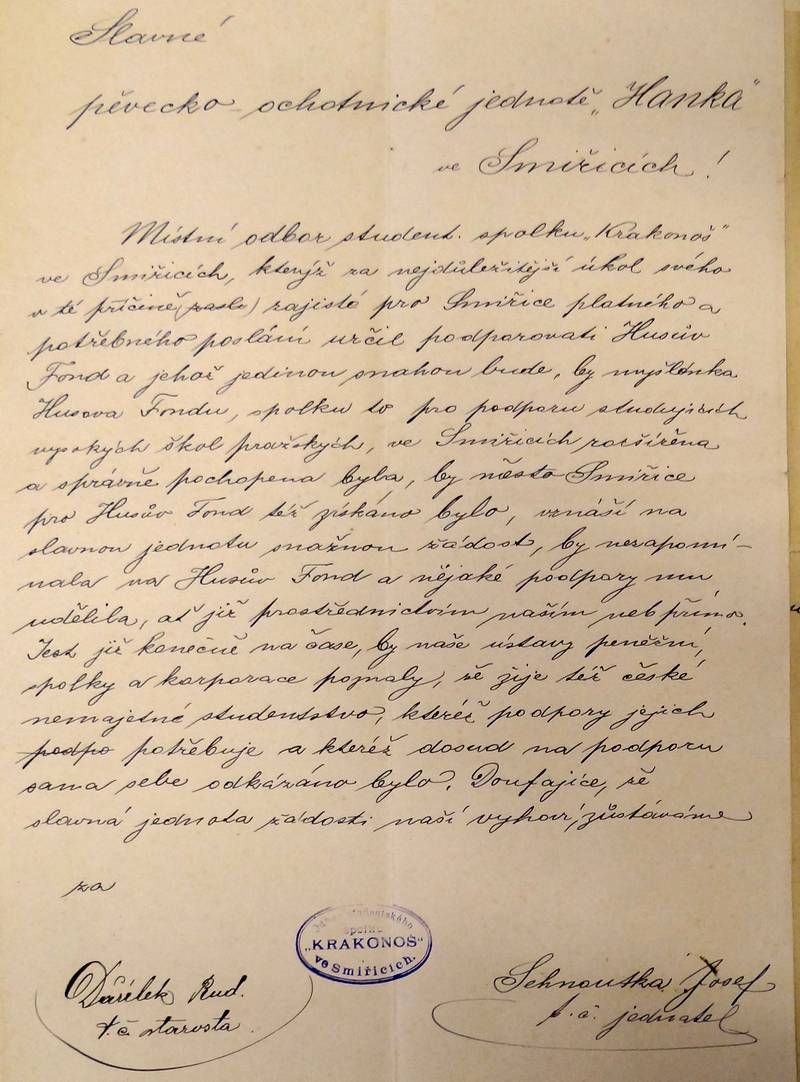 Slavné
pěvecko-ochotnické jednotě „Hanka"
ve Smiřicích!
Místní odbor student. spolku „Krakonoš"
ve Smiřicích, kterýž za nejdůležitější úkol svého
v té příčině (zasl.) zajisté pro Smiřice platného a
potřebného poslání určil podporovati Husův
Fond a jehož jedinou snahou bude, by myšlénka
Husova Fondu, spolku to pro podporu studujících
vysokých škol pražských, ve Smiřicích rozšířena
a správně pochopena byla, by město Smiřice
pro Husův Fond též získáno bylo, vznáší na
slavnou jednotu snažnou žádost, by nezapomí-
nala na Husův Fond a nějaké podpory mu
udělila, ať již prostřednictvím naším neb přímo.
Jest již konečně na čase, by naše ústavy peněžní,
spolky a korporace pojmaly, že žije též české
nemajetné studentstvo, kteréž podpory jejich
podpo potřebuje a kteréž dosud na podporu
sama sebe odkázáno bylo. Doufajíce, že
slavná jednota žádosti naší vyhoví, zůstáváme
za
Odbor studentského
spolku
„KRAKONOŠ"
ve Smiřicích.
Rud.
t. č. starosta.
Sehnoutka Josef
t. č. jednatel